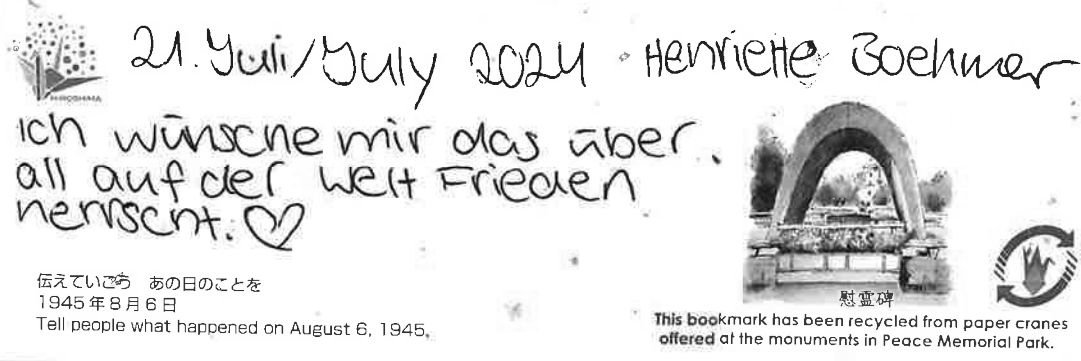 21. Juli/July 2024 Henriette Boehmer
HIROSHIMA
Ich wünsche mir das über.
all auf der Welt Frieden
herrscht. ♡
伝えていこう あの日のことを
1945年8月6日
Tell people what happened on August 6, 1945.
慰霊碑
This bookmark has been recycled from paper cranes
offered at the monuments in Peace Memorial Park.